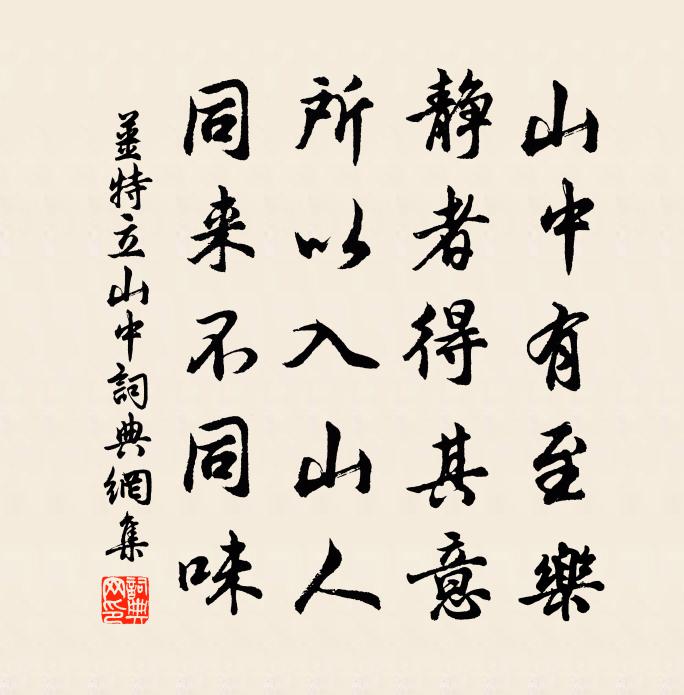 山中有至樂
静者得其意
所以入山人
同来不同味
姜特立山中詞典網集
詞典网印